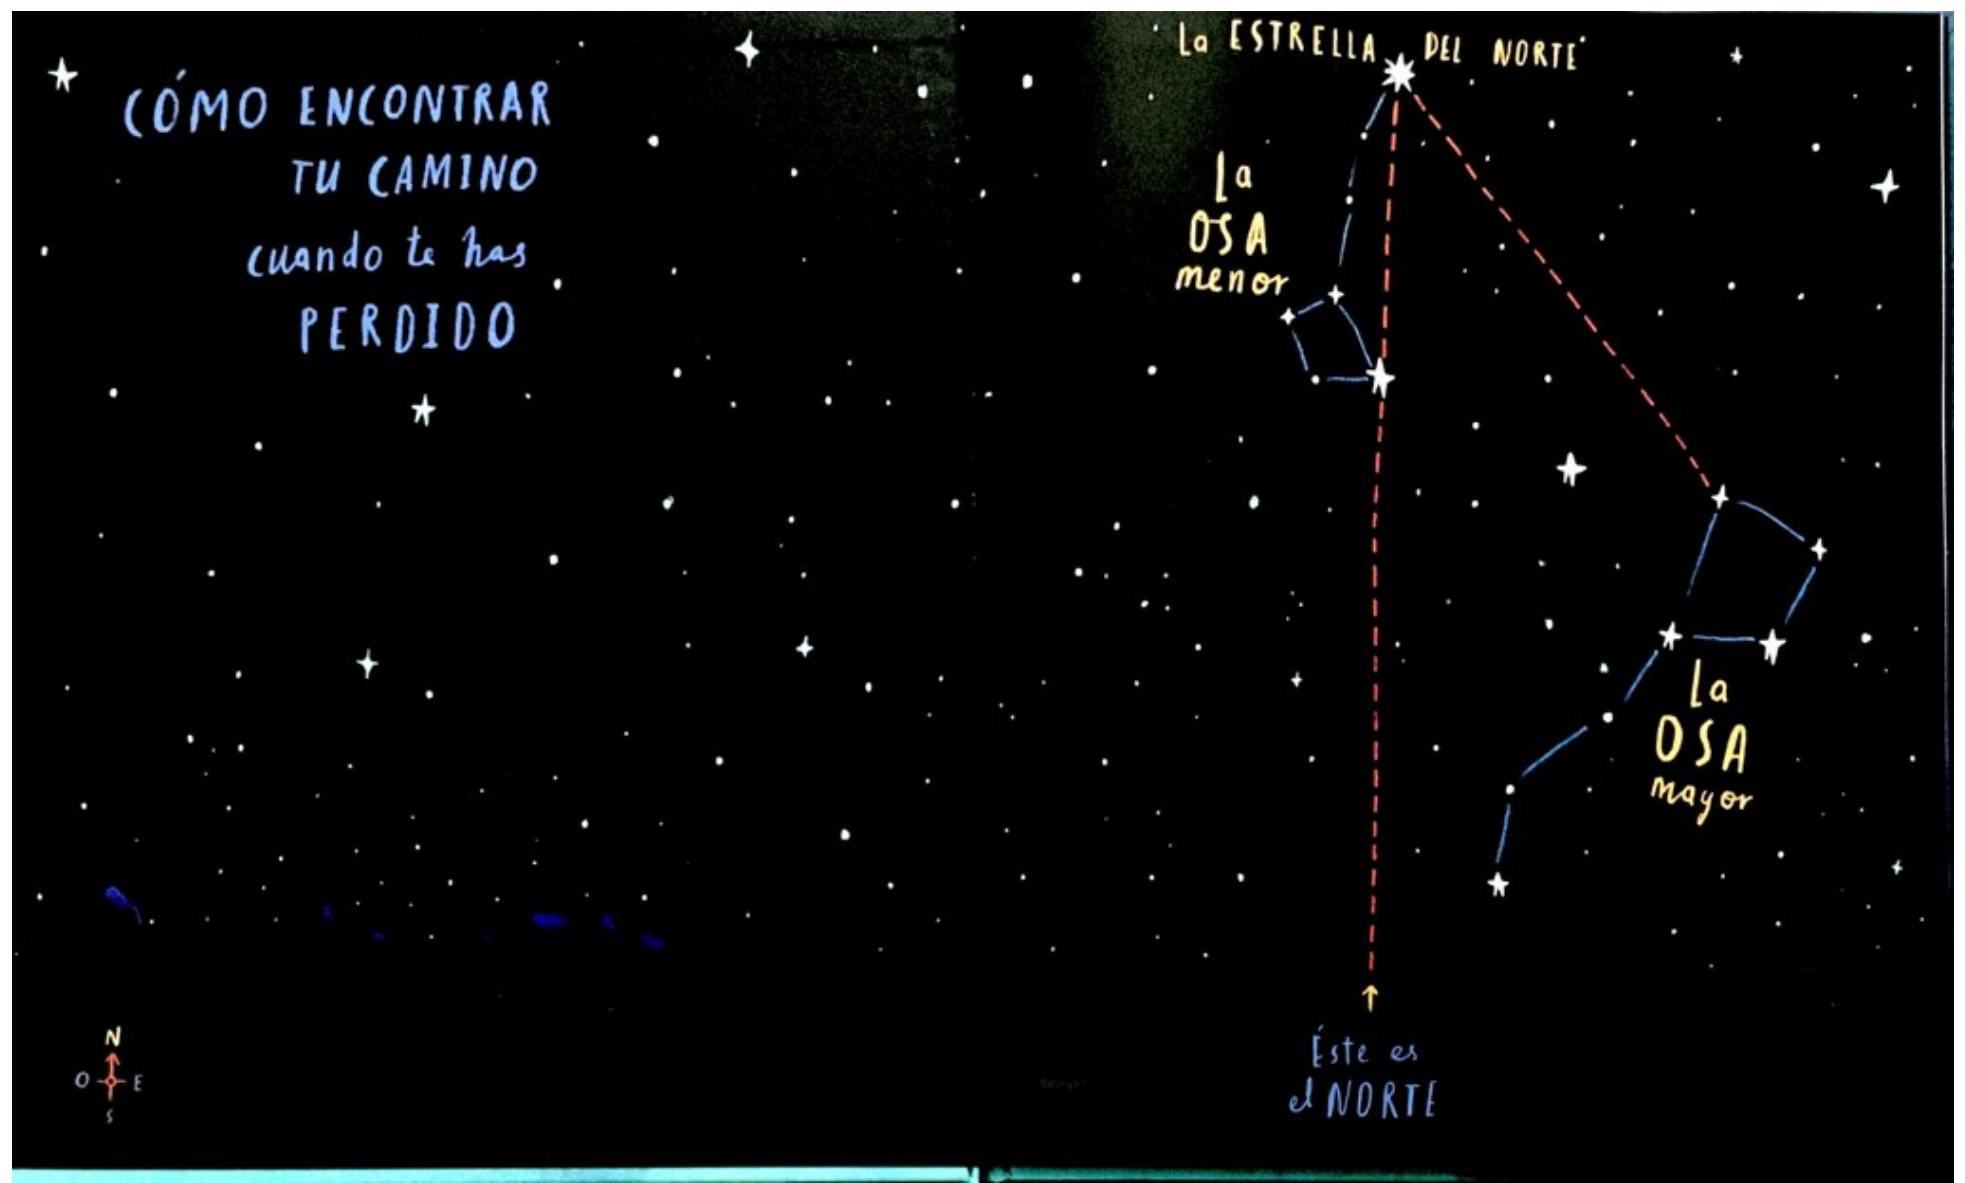 CÓMO ENCONTRAR
TU CAMINO
cuando te has
PERDIDO
La ESTRELLA DEL NORTE
La
OSA
menor
La
OSA
mayor
N
O E
S
Éste es
el NORTE